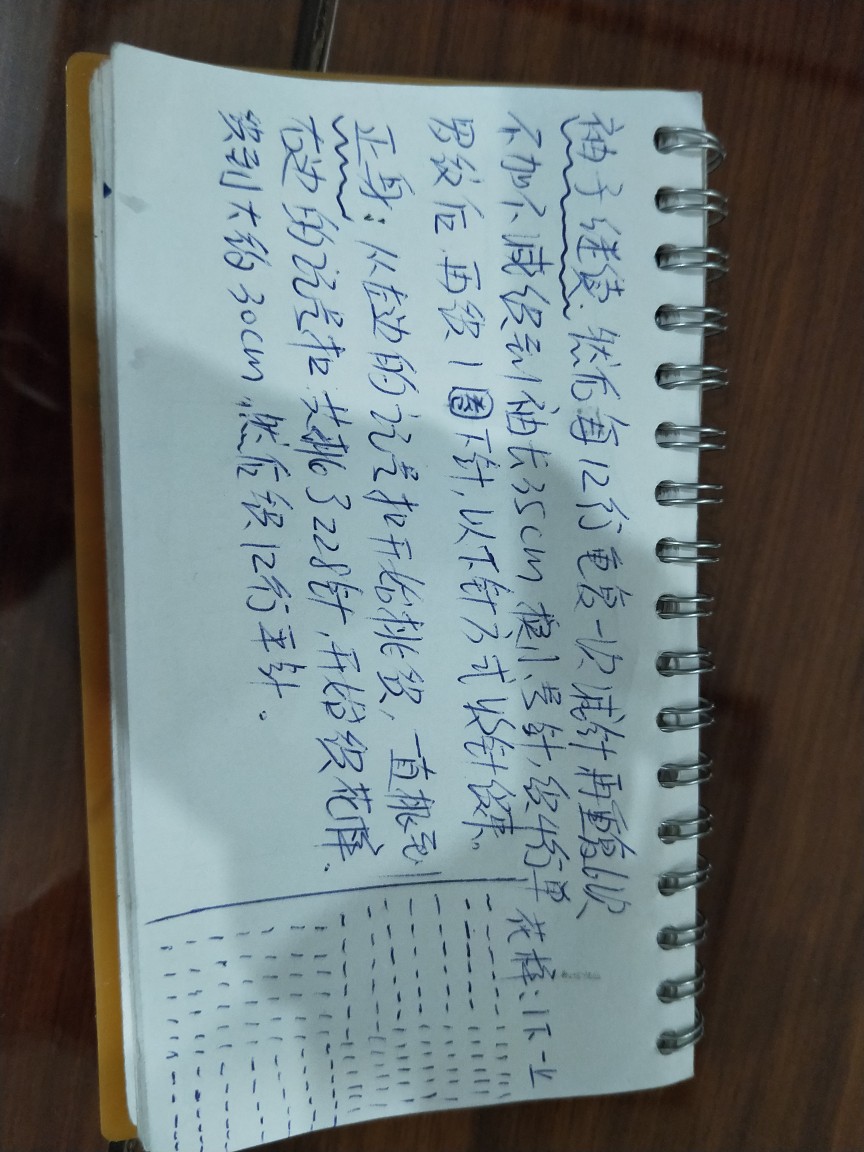 袖子继续.然后每12行重复一次减针再重复6次
不加不减织到袖长35cm 换小号针,织4行单
罗纹后.再织1圈下针,以下针方式收针结束。
正身:从右边的记号扣开始挑织,直挑到
左边的记号扣.共挑了228针.开始织花样.
织到大约30cm,然后织12行平针。
花样:1下-上